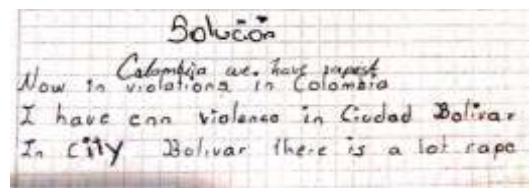 Solución
Colombia we. have rapest
Now in violations in Colombia
I have enn violence in Ciudad Bolivar
In City Bolivar there is a lot rape